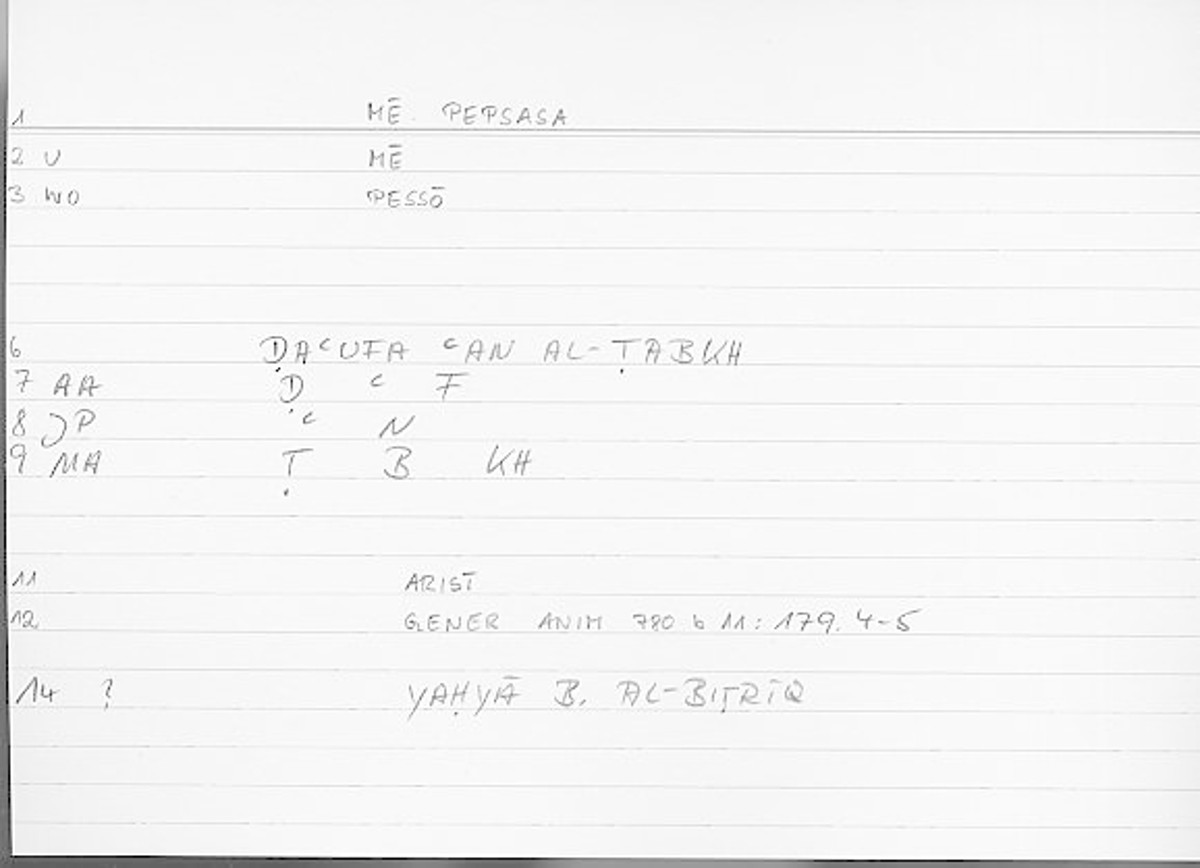 1 MĒ PEPSASA
2 U MĒ
3 WO PESSŌ
6 ḌAᶜUFA ᶜAN AL-ṬABKH
7 AA Ḍ ᶜ F
8 JP ᶜ N
9 MA Ṭ B KH
11 ARIST
12 GENER ANIM 780 b 11: 179. 4-5
14 ? YAḤYĀ B. AL-BIṬRĪQ